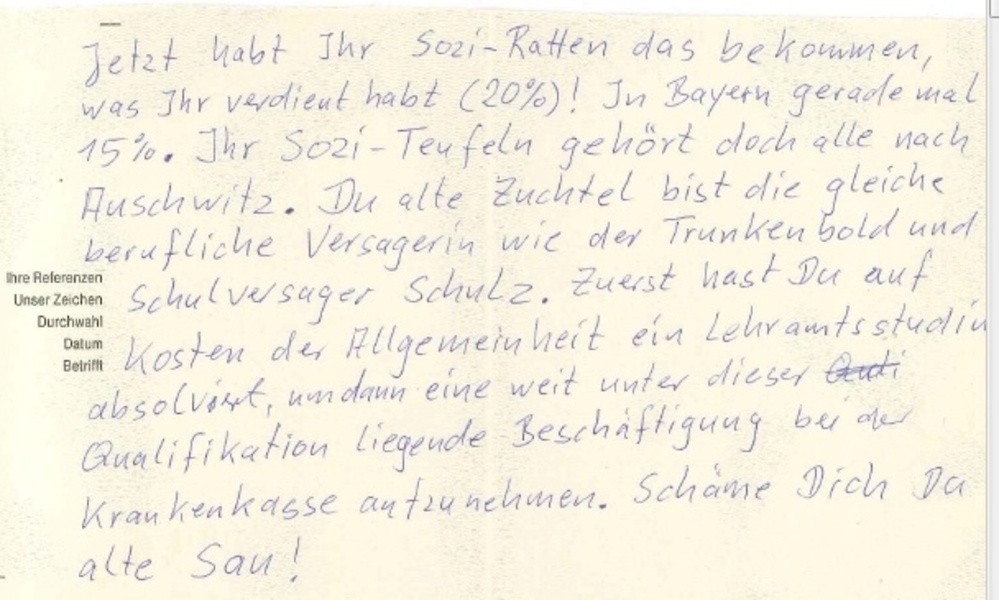 Jetzt habt Ihr Sozi-Ratten das bekommen,
was Ihr verdient habt (20%)! In Bayern gerade mal
15%. Ihr Sozi-Teufeln gehört doch alle nach
Auschwitz. Du alte Zuchtel bist die gleiche
berufliche Versagerin wie der Trunkenbold und
Ihre Referenzen
Unser Zeichen
Durchwahl
Datum
Betrifft
Schulversager Schulz. Zuerst hast Du auf
Kosten der Allgemeinheit ein Lehramtsstudiu
absolviert, um dann eine weit unter dieser
Qualifikation liegende Beschäftigung bei der
Krankenkasse aufzunehmen. Schäme Dich Du
alte Sau!